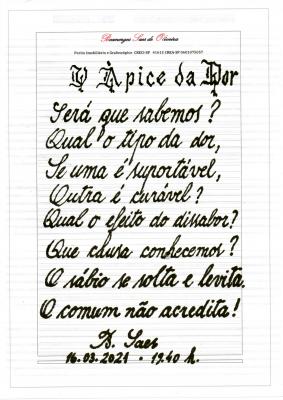 Rosmengos Saes de Oliveira
Perito Imobiliário e Grafotécnico CRECI-SP
O Àpice da Dor
Será que sabemos?
Qual o tipo da dor,
Se uma é suportável,
Outra é curável?
Qual o efeito do dissabor?
Que causa conhecemos?
O sábio se solta e levita.
O comum não acredita!
D. Saes
16.03.2021 - 19.40 h.